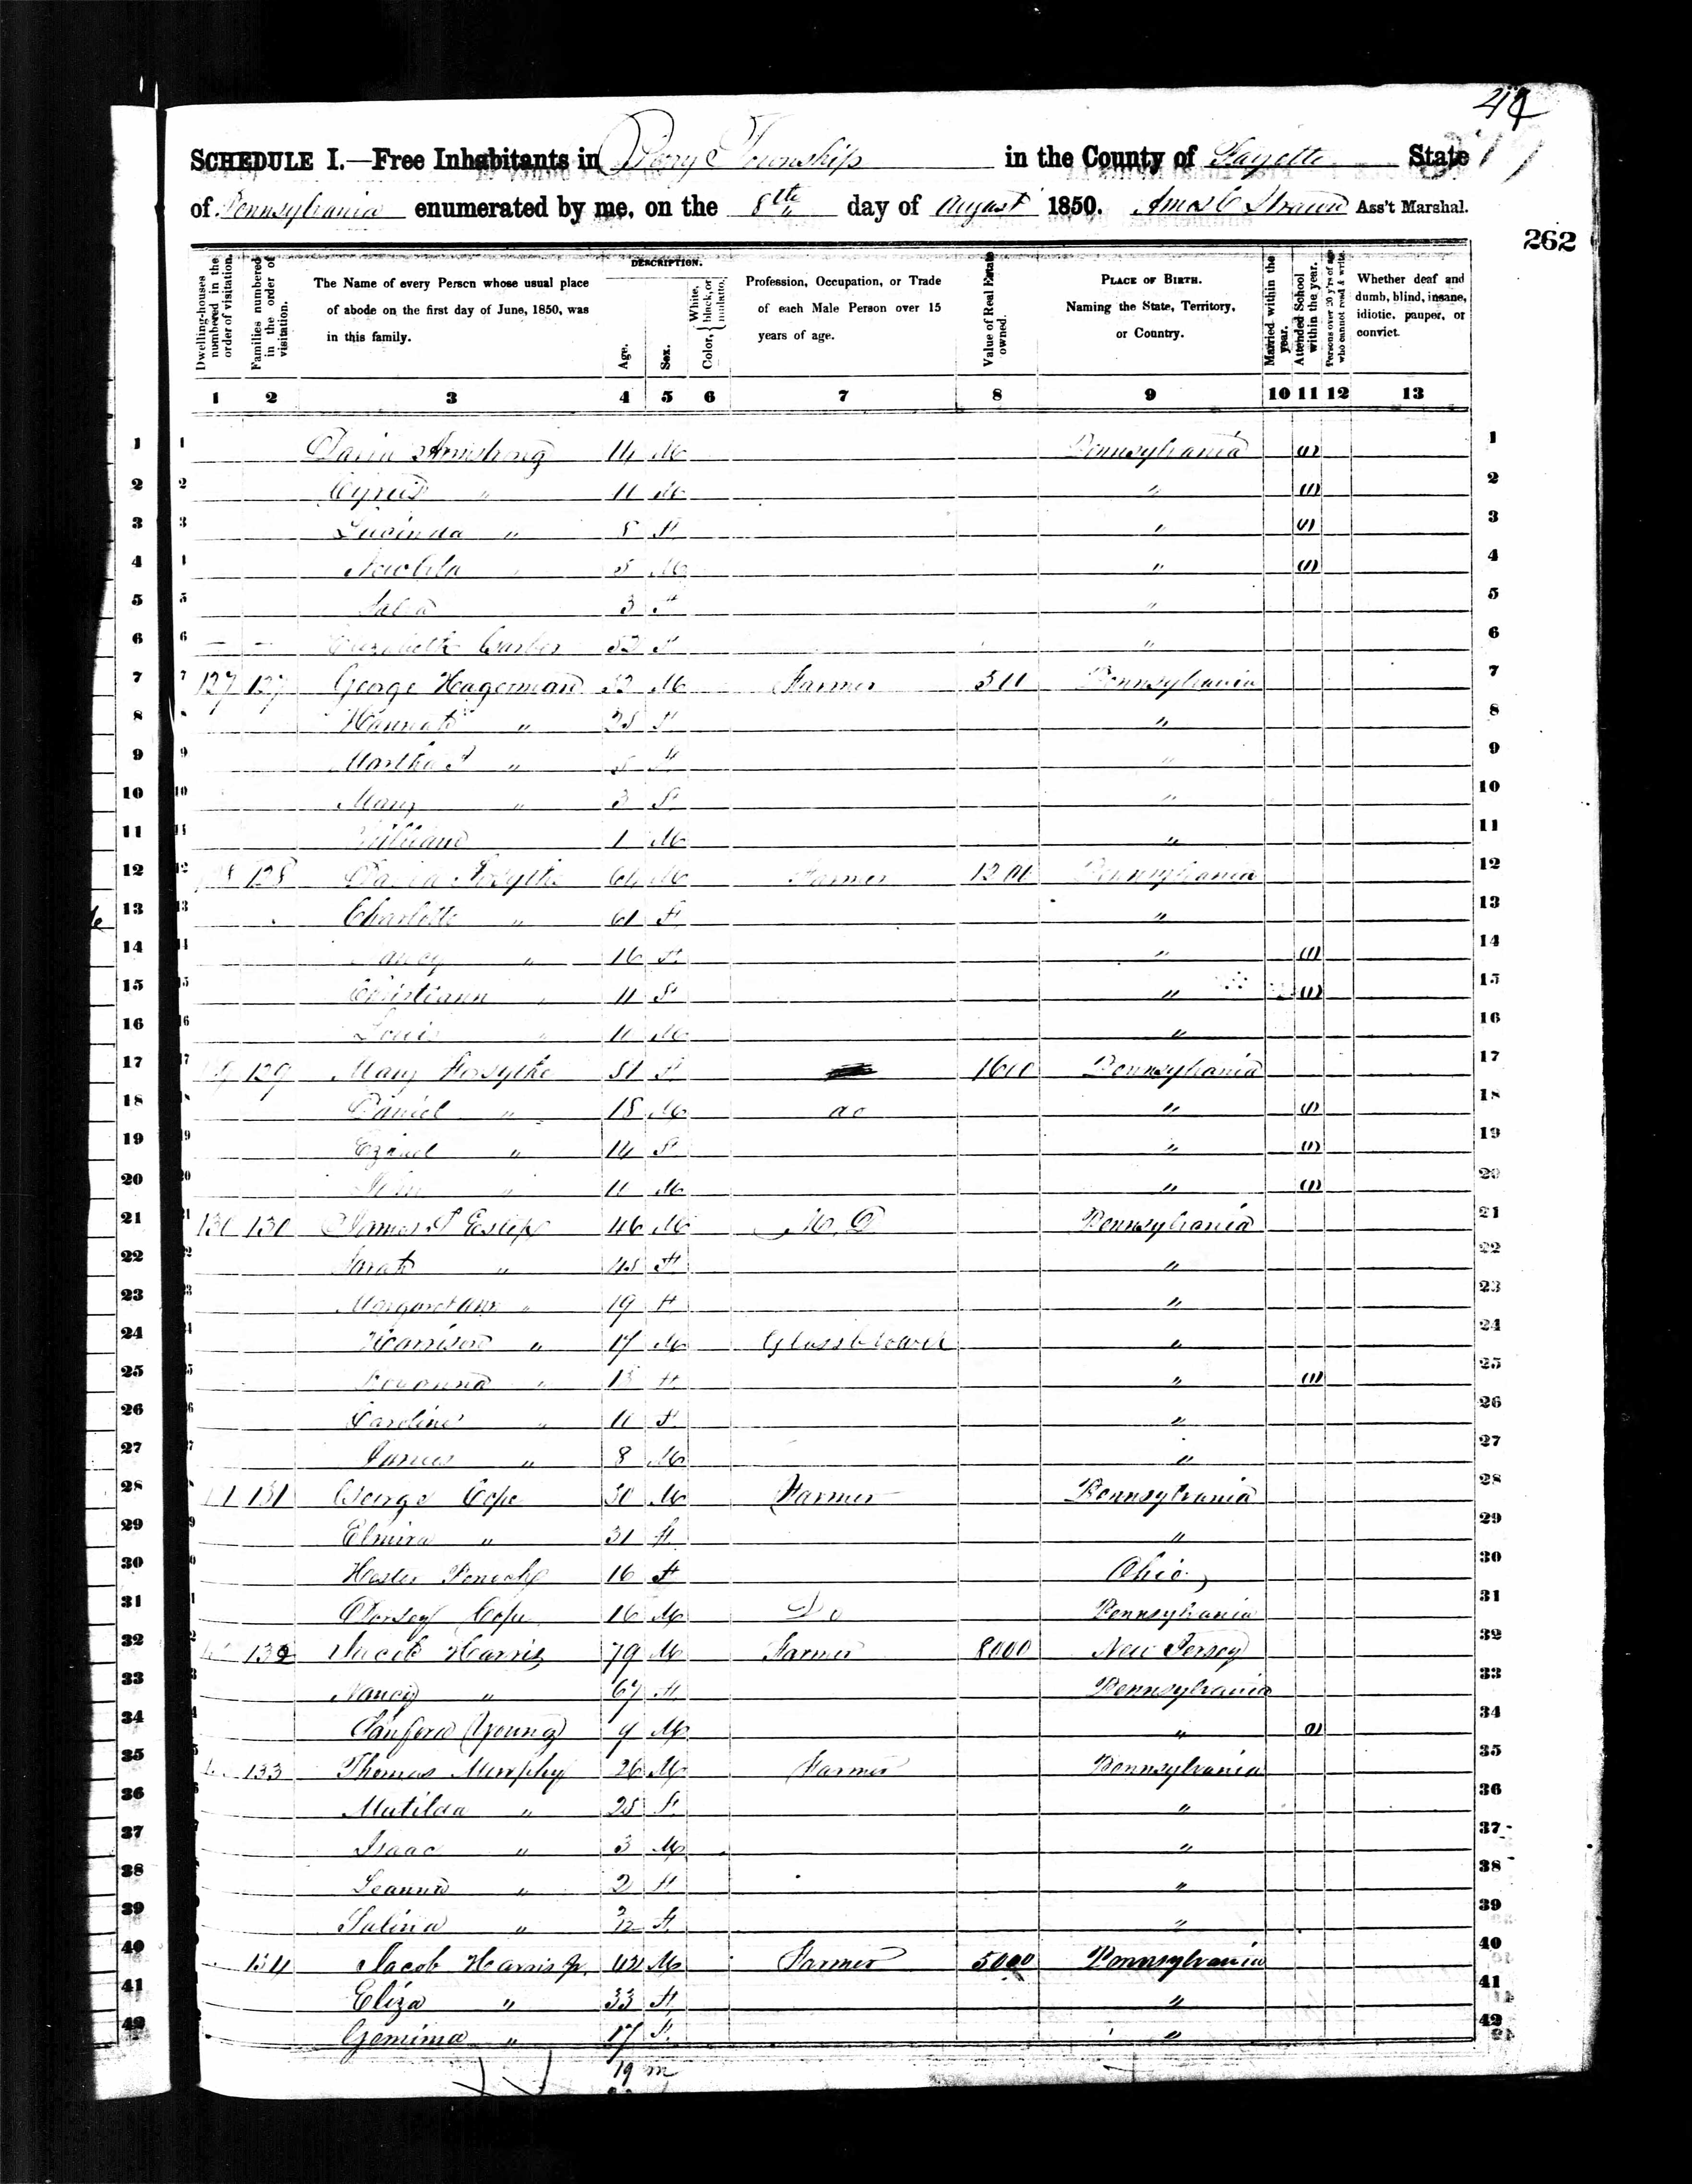 44
SCHEDULE I.—Free Inhabitants in Perry Township in the County of Fayette State
of Pennsylvania enumerated by me, on the 8th day of August 1850. Amos C Strawn Ass't Marshal.
262
Dwelling-houses numbered in the order of visitation.
Families numbered in the order of visitation.
The Name of every Person whose usual place of abode on the first day of June, 1850, was in this family.
DESCRIPTION.
Age.
Sex.
Color, { White, black, or mulatto.
Profession, Occupation, or Trade of each Male Person over 15 years of age.
Value of Real Estate owned.
PLACE OF BIRTH. Naming the State, Territory, or Country.
Married within the year.
Attended School within the year.
Persons over 20 y'rs of age who cannot read & write.
Whether deaf and dumb, blind, insane, idiotic, pauper, or convict.
1 2 3 4 5 6 7 8 9 10 11 12 13
1 David Armstrong 14 M Pennsylvania (1) 1
2 Cyrus " 11 M " (1) 2
3 Lucinda " 8 F " (1) 3
4 5 M " (1) 4
5 3 F " 5
6 — — Elizabeth 52 F " 6
7 127 127 George Hagerman 32 M Farmer 500 Pennsylvania 7
8 Hannah " 28 F " 8
9 Martha " 5 F " 9
10 Mary " 3 F " 10
11 William 1 M " 11
12 128 128 David Forsythe 64 M Farmer 1200 Pennsylvania 12
13 Charlotte " 61 F " 13
14 Nancy " 16 F " (1) 14
15 Christiann " 11 F " (1) 15
16 Louis " 11 M " 16
17 129 129 Mary Forsythe 51 F 1600 Pennsylvania 17
18 Daniel " 18 M do " (1) 18
19 " 14 F " (1) 19
20 " 11 M " (1) 20
21 130 130 James S Estep 46 M M. D Pennsylvania 21
22 Sarah " 45 F " 22
23 Margaret ann " 19 F " 23
24 Harrison " 17 M Glassblower " 24
25 " 13 F " (1) 25
26 Caroline " 11 F " 26
27 James " 8 M " 27
28 131 131 George Cope 30 M Farmer Pennsylvania 28
29 Elmira " 31 F " 29
30 Hester 16 F Ohio 30
31 Dorsey Cope 16 M Do Pennsylvania 31
32 132 Jacob Harris 79 M Farmer 8000 New Jersey 32
33 Nancy " 67 F Pennsylvania 33
34 Sanford (Young) 9 M " (1) 34
35 133 Thomas Murphy 26 M Farmer Pennsylvania 35
36 Matilda " 25 F " 36
37 Isaac " 3 M " 37
38 Leanna " 2 F " 38
39 Salina " F " 39
40 134 Jacob Harris Jr. 42 M Farmer 5000 Pennsylvania 40
41 Eliza " 33 F " 41
42 Gemima " 17 F " 42
19 m